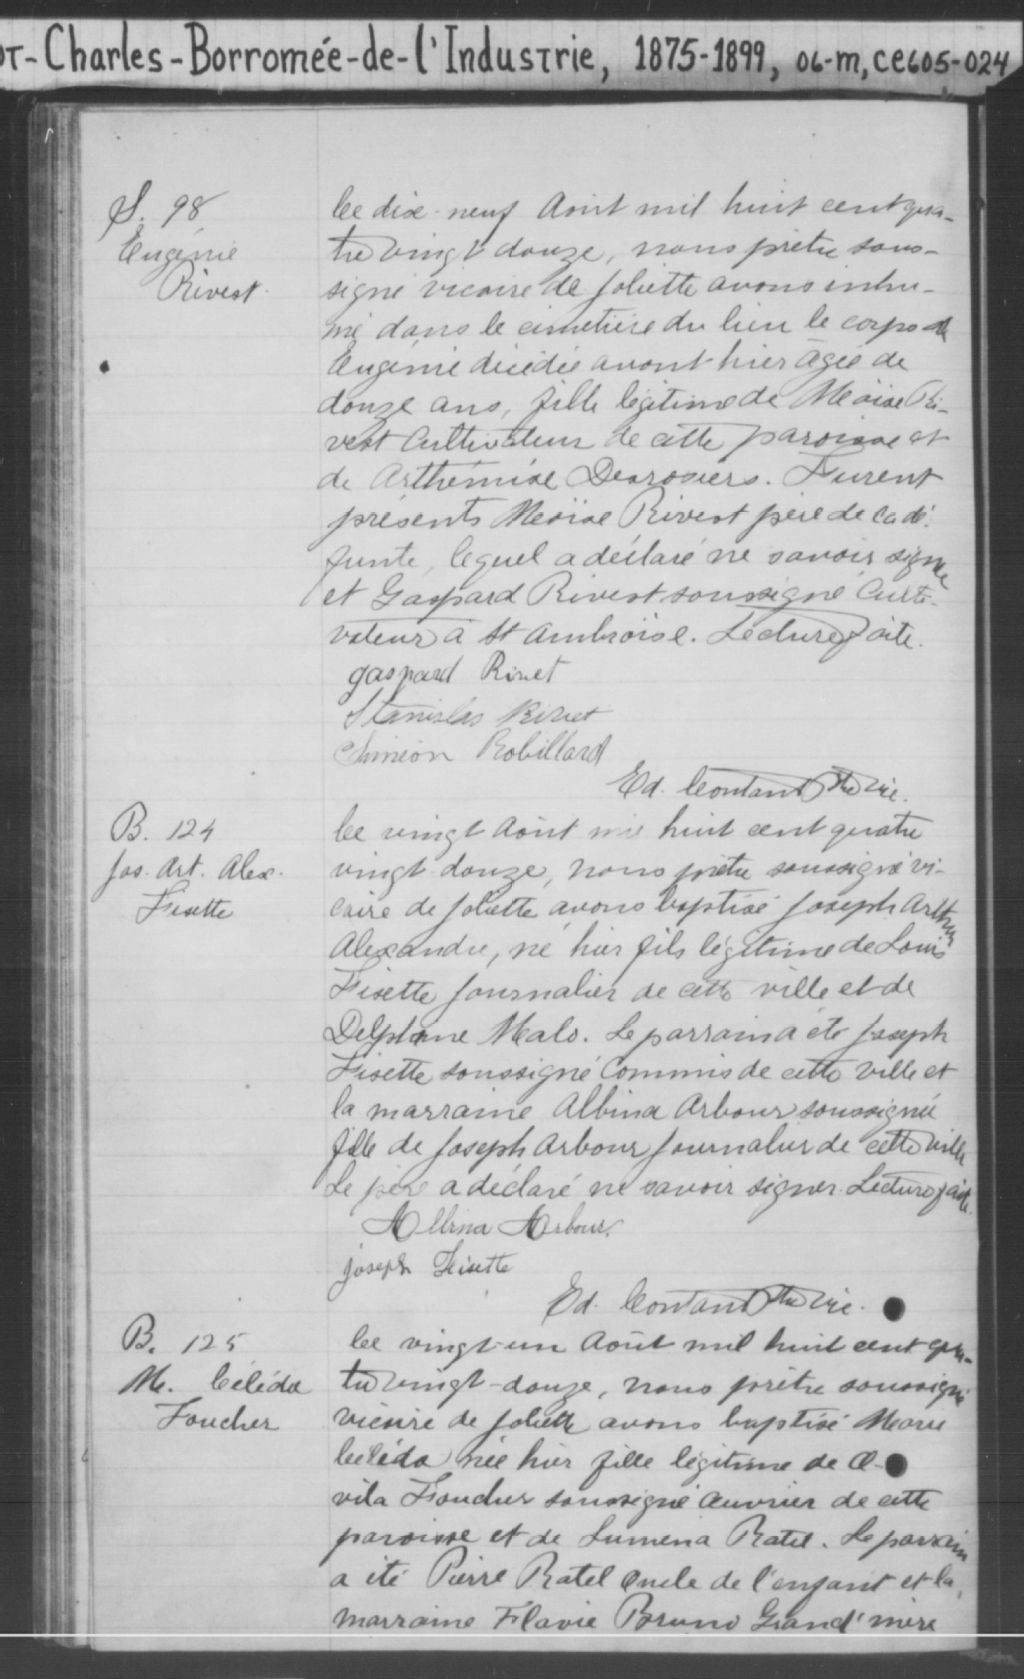 OT-Charles-Borromée-de-l'Industrie, 1875-1899, 06-M, CE605-024
S. 98
Eugénie
Rivest.
Ce dix-neuf Août mil huit cent qua-
tre vingt douze, nous prêtre sous-
signé vicaire de Joliette avons inhu-
mé dans le cimetière du lieu le corps de
Eugénie décédée avant hier âgée de
douze ans, fille légitime de Moïse Ri-
vest Cultivateur de cette paroisse et
de Arthémise Desrosiers. Furent
présents Moïse Rivest père de la dé-
funte, lequel a déclaré ne savoir signer
et Gaspard Rivest soussigné Culti-
vateur à St Ambroise. Lecture faite.
gaspard Rivet
Stanislas Rivet
Siméon Robillard
Ed. Contant Ptre Vic.
B. 124
Jos. Art. Alex.
Fisette
Ce vingt Août mil huit cent quatre
vingt douze, nous prêtre soussigné vi-
caire de Joliette avons baptisé Joseph Arthur
Alexandre, né hier fils légitime de Louis
Fisette Journalier de cette ville et de
Delphine Malo. Le parrain a été Joseph
Fisette soussigné Commis de cette ville et
la marraine Albina Arbour soussignée
fille de Joseph Arbour Journalier de cette ville
Le père a déclaré ne savoir signer. Lecture faite.
Albina Arbour.
joseph Fisette
Ed. Contant Ptre Vic.
B. 125
M. Céléda
Foucher
Ce vingt-un Août mil huit cent qua-
tre vingt-douze, nous prêtre soussigné
vicaire de Joliette avons baptisé Marie
Céléda née hier fille légitime de O-
vila Foucher soussigné Ouvrier de cette
paroisse et de Lumena Ratel. Le parrain
a été Pierre Ratel Oncle de l'enfant et la
marraine Flavie Bruno Grand'mère